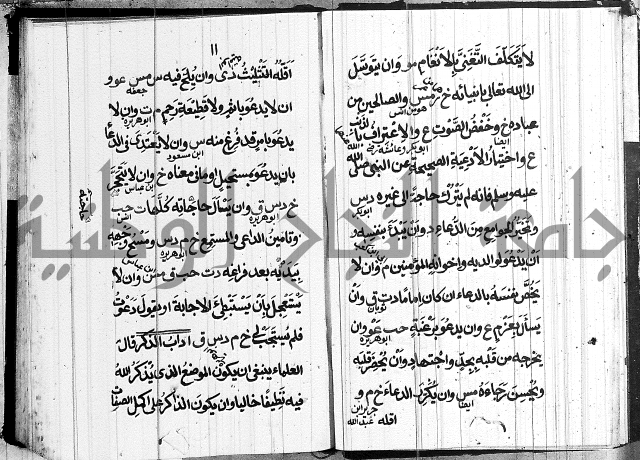 لا يتكلف التغني بالانغام مو وان يتوسل
الى الله تعالى بانبيائه خ ر مس والصالحين من
عباده خ وخفض الصوت ع والاعتراف بالذنب
ع واختيار الادعية الصحيحة عن النبي صلى الله
عليه وسلم فانه لم يترك حاجة الى غيره د س
ويتخير الجوامع من الدعاء د وان يبدأ بنفسه د
وان يدعو لوالديه واخوانه المؤمنين م وان لا
يخص نفسه بالدعاء ان كان اماما د ت ق وان
يسأل بعزم ع وان يدعو برغبة حب عو وان
يخرجه من قلبه بجد واجتهاد وان يحضر قلبه
ويحسن رجاءه مس وان يكرر الدعاء خ م و
اقله
١١
اقله التثليث د ى وان يلح فيه س مس عو و
ان لا يدعو باثم ولا قطيعة رحم م ت وان لا
يدعو بامر قد فرغ منه س وان لا يعتدي في الدعاء
بان يدعو بمستحيل او ما في معناه خ وان لا يتحجر
خ د س ق وان يسأل حاجاته كلها ت حب
وتامين الداعي والمستمع خ م د س ومسح وجهه
بيديه بعد فراغه د ت حب ق مس وان لا
يستعجل بان يستبطئ الاجابة او يقول دعوت
فلم يستجب لي خ م د س ق اداب الذكر قال
العلماء ينبغي ان يكون الموضع الذي يذكر الله
فيه نظيفا خاليا وان يكون الذاكر على اكمل الصفات
جامعة النجاح الوطنية